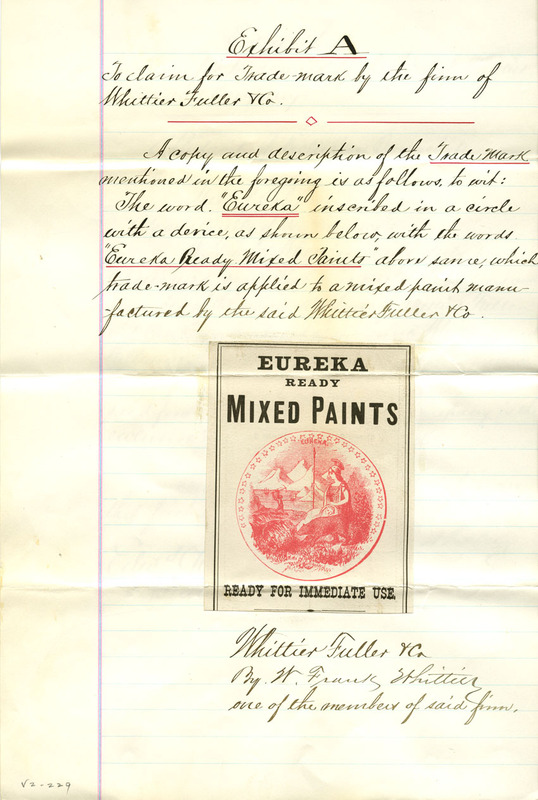 Exhibit A
To claim for Trade-mark by the firm of
Whittier Fuller & Co.
A copy and description of the Trade Mark
mentioned in the foregoing is as follows, to wit:
The word "Eureka" inscribed in a circle
with a device, as shown below, with the words
"Eureka Ready Mixed Paints" above same, which
trade-mark is applied to a mixed paint manu-
factured by the said Whittier Fuller & Co.
EUREKA
READY
MIXED PAINTS
EUREKA
READY FOR IMMEDIATE USE.
Whittier Fuller & Co
By. W. Frank Whittier
one of the members of said firm.
V2-229